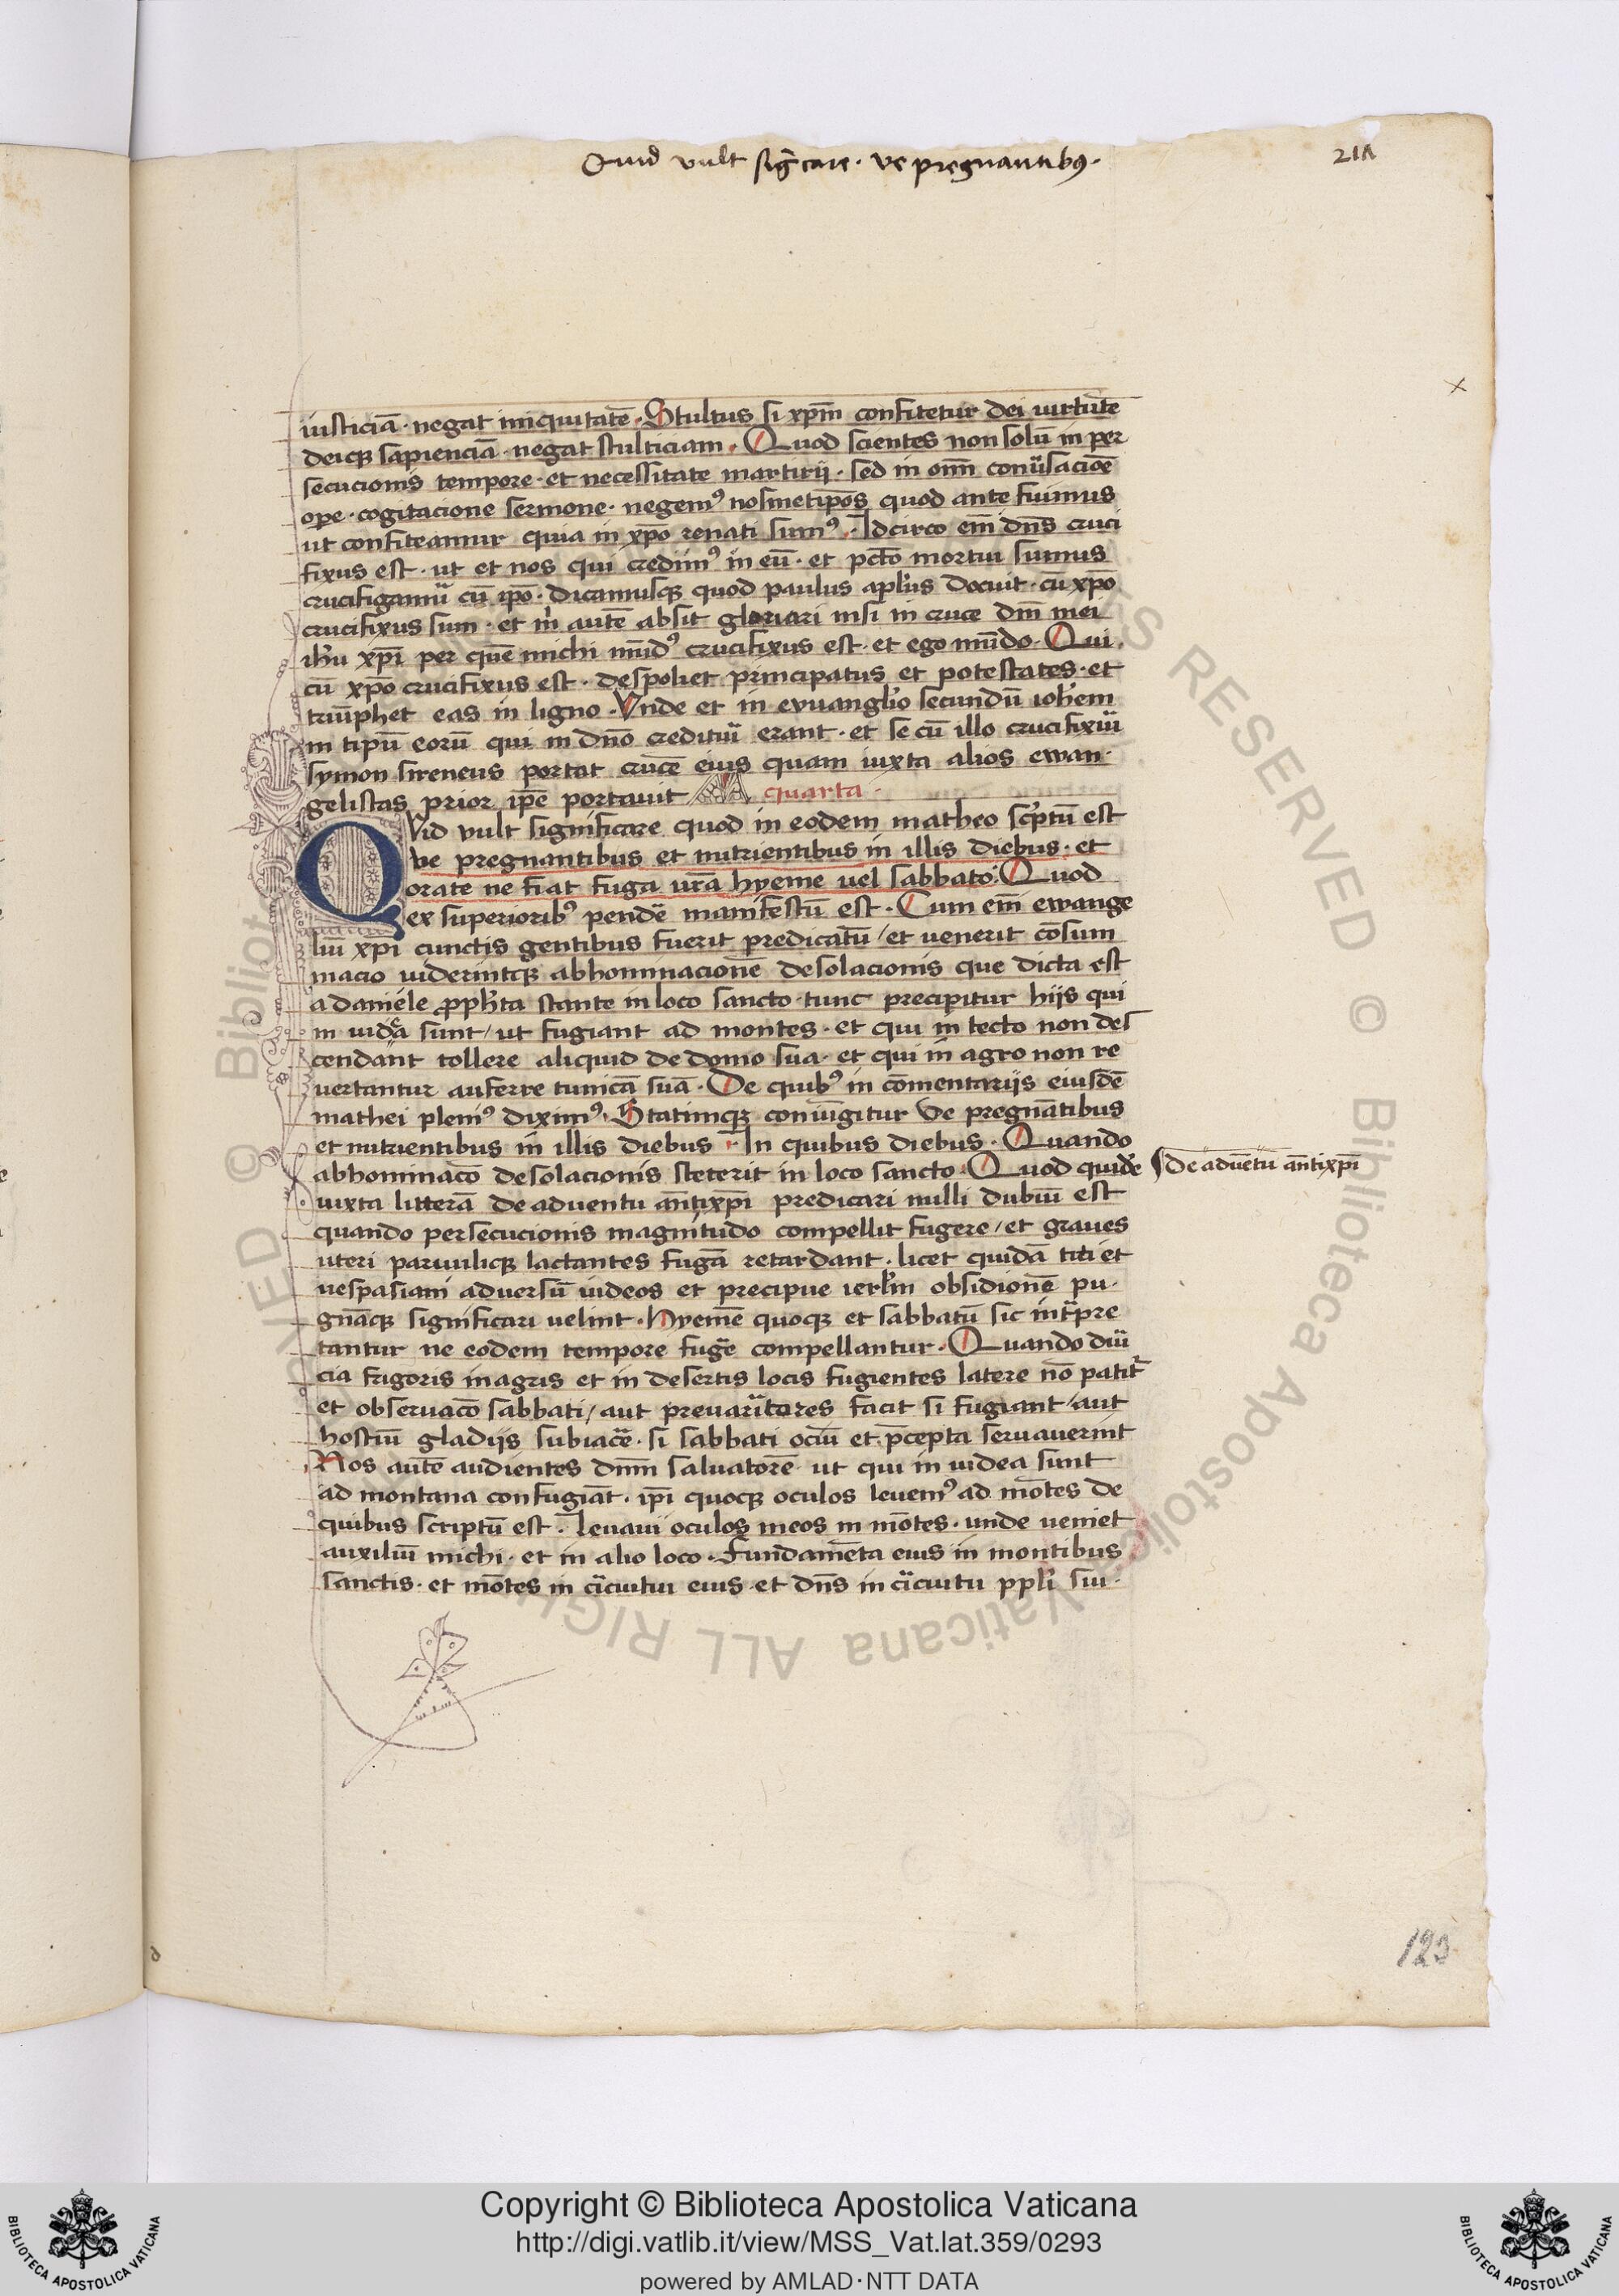 Quid vult sig̅care · ve pregnantibꝰ ·
iusticiā · negat iniquitatē · Stultus si xp̅m confitetur dei uirtutē
deiqꝫ sapienciā · negat stulticiam · Quod scientes non solū in per
secucionis tempore · et necessitate martirij · sed in om̅i conu̅sacio̅e
ope · cogitacione sermone · negemꝰ nosmetip̅os quod ante fuimus
ut confiteamur quia in xp̅o renati sumꝰ · Idcirco em̅ dn̅s cruci
fixus est · ut et nos qui credimꝰ in eū · et pc̅to mortui sumus
crucifigamu̅ cū ip̅o · dicamusqꝫ quod paulus apl̅us docuit · cū xp̅o
crucifixus sum · et m̅ autē absit gloriari nisi in cruce dn̅i mei
ih̅u xp̅i per quē michi mūdꝰ crucifixus est · et ego mūdo · Qui
cū xp̅o crucifixus est · despoliet principatus et potestates · et
triūphet eas in ligno · Vnde et in evuangl̅io secundū ioh̅em
in tipū eorū qui in dn̅o creditu̅ erant · et se cū illo crucifixu̅
symon sireneus portat crucē eius quam iuxta alios ewan·
gelistas prior ip̅e portauit quarta ·
QVid vult significare quod in eodem matheo sc̅ptū est
ve pregnantibus et nutrientibus in illis diebus · et
orate ne fiat fuga ur̅a hyeme uel sabbato · Quod
ex superioribꝰ pende̅ manifestū est · Cum em̅ ewange
liū xp̅i cunctis gentibus fuerit predicatū / et uenerit cōsum
macio uiderintqꝫ abhominacionē desolacionis que dicta est
a daniele ꝓph̅ta stante in loco sancto · tunc precipitur hijs qui
in iudea sunt / ut fugiant ad montes · et qui in tecto non des
cendant tollere aliquid de domo sua · et qui in agro non re
uertantur auferre tunicā suā · De quibꝰ in cōmentarijs eiusdē
mathei pleniꝰ diximꝰ · Statimqꝫ coniūgitur Ve pregnātibus
et nutrientibus in illis diebus · In quibus diebus · Quando
abhominac̅o desolacionis steterit in loco sancto · Quod quidē
De aduētū an̅tixp̅i
iuxta litterā de aduentu an̅tixp̅i predicari nulli dubiū est
quando persecucionis magnitudo compellit fugere / et graues
uteri paruuliqꝫ lactantes fugā retardant · licet quidā titi et
uespasiani aduersū iudeos et precipue ierl̅m obsidionē pu·
gnāqꝫ significari uelint · Hyemē quoqꝫ et sabbatū sic int̅pre
tantur ne eodem tempore fuge̅ compellantur · Quando du̅i
cia frigoris in agris et in desertis locis fugientes latere nō patit̅
et obseruac̅o sabbati / aut preuaricatores facit si fugiant / aut
hostiū gladijs subiace̅ · si sabbati ociū et p̅cepta seruauerint
Nos autē audientes dn̅m saluatorē · ut qui in iudea sunt
ad montana confugiāt · ip̅i quoqꝫ oculos leuemꝰ ad mōtes de
quibus scriptū est · leuaui oculos meos in mōtes · unde ueniet
auxiliū michi · et in alio loco · Fundamēta eius in montibus
sanctis · et mōtes in ci̅cuitu eius · et dn̅s in ci̅cuitu ppl̅i sui ·
123
Copyright © Biblioteca Apostolica Vaticana
http://digi.vatlib.it/view/MSS_Vat.lat.359/0293
powered by AMLAD·NTT DATA
BIBLIOTECA APOSTOLICA VATICANA
BIBLIOTECA APOSTOLICA VATICANA